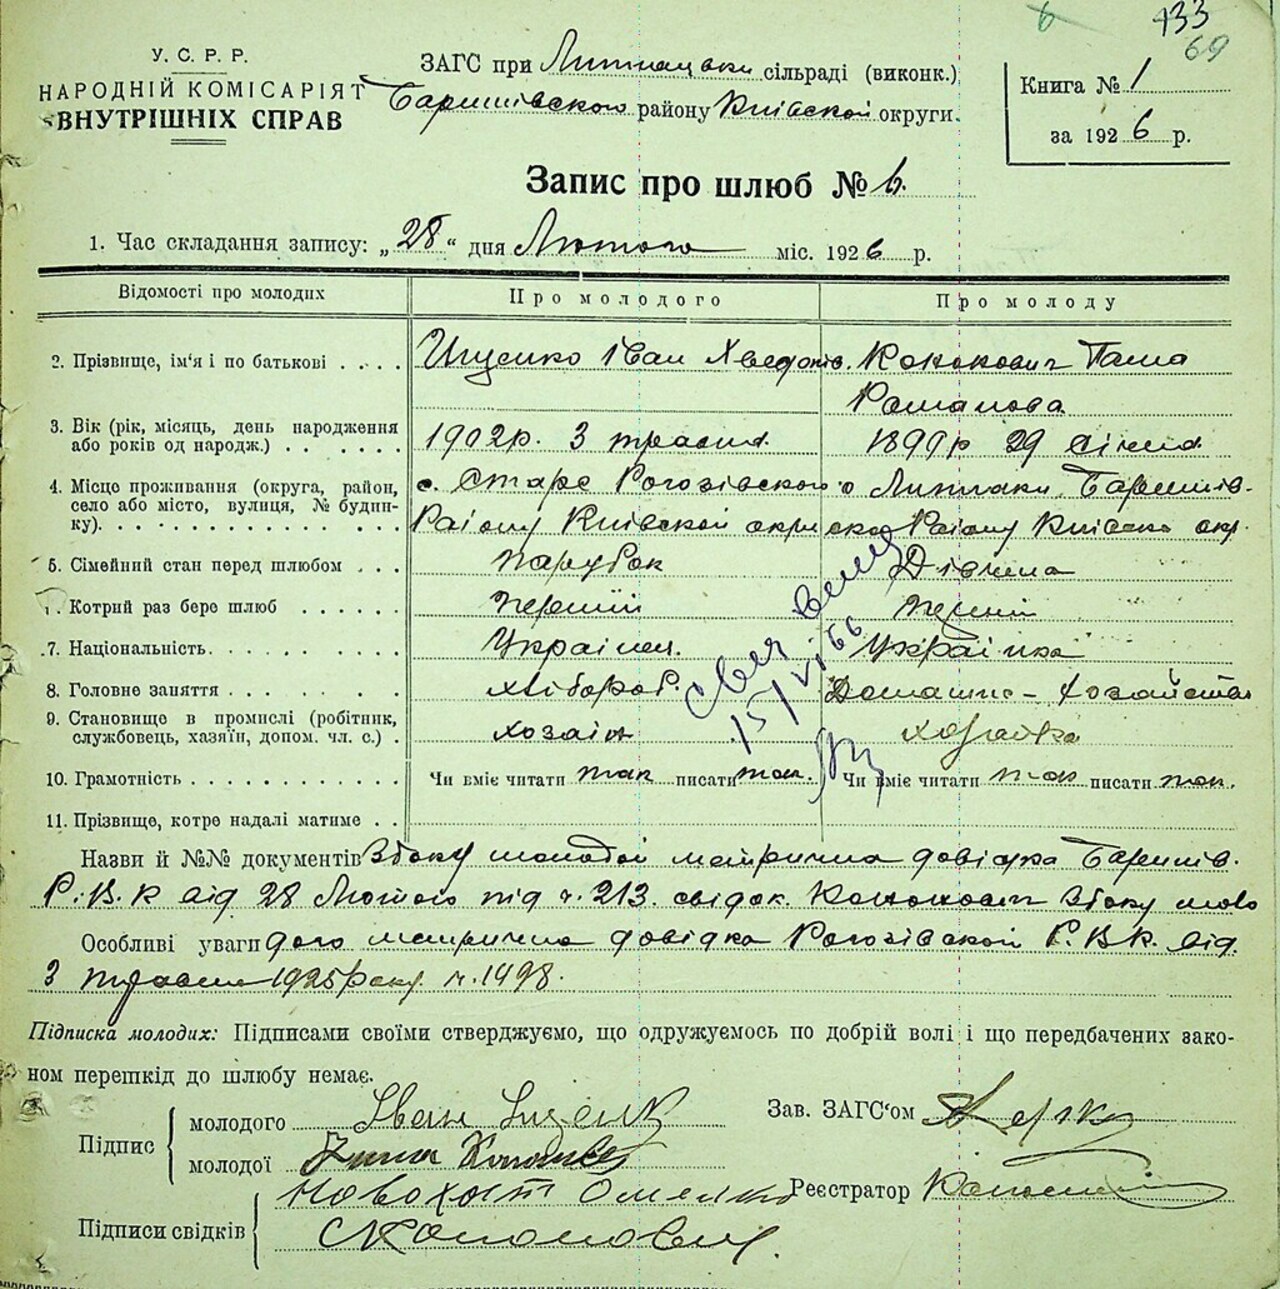 133
69
У. С. Р. Р.
НАРОДНІЙ КОМІСАРІЯТ
ВНУТРІШНІХ СПРАВ
ЗАГС при сільраді (виконк.)
Баришівського району Київської округи.
Книга № 1
за 1926 р.
Запис про шлюб № 6.
1. Час складання запису: „28“ дня Лютого міс. 1926 р.
Відомості про молодих Про молодого Про молоду
2. Прізвище, ім'я і по батькові . . . . Іщенко Іван Хведорів. Кононович
Романова
3. Вік (рік, місяць, день народження
або років од народж.) . . . . . . 1902р. 3 травня 1899р 29 Січня
4. Місце проживання (округа, район,
село або місто, вулиця, № будин-
ку). . . . . . . . . . . . . .
с. Старе Рогозівского с Литвяки Баришів-
Раіону Київской окри ского Раіону Київско окр.
5. Сімейний стан перед шлюбом . . . Парубок Дівчина
. Котрий раз бере шлюб . . . . . . перший перший
7. Національність. . . . . . . . . . Українец. Українка
8. Головне заняття . . . . . . . . хлібороб. Домашнє - хозайство
9. Становище в промислі (робітник,
службовець, хазяїн, допом. чл. с.) . хозаін хозайка
15/VI 66
10. Грамотність . . . . . . . . . . . Чи вміє читати так писати так. Чи вміє читати так писати так.
11. Прізвище, котре надалі матиме . .
Назви й №№ документів Збоку молодой метрична довідка Баришів.
Р.В.К від 28 Лютого під ч. 213. свідок. Кононович Збоку моло
Особливі уваги дого метрична довідка Рогозівской Р.В.К. від
3 травня 1925 року ч. 1498.
Підписка молодих: Підписами своїми стверджуємо, що одружуємось по добрій волі і що передбачених зако-
ном перешкід до шлюбу немає.
Підпис
молодого Іван Іщенко
молодої
Зав. ЗАГС'ом
Підписи свідків
Новохат Омелько
Кононович
Реєстратор